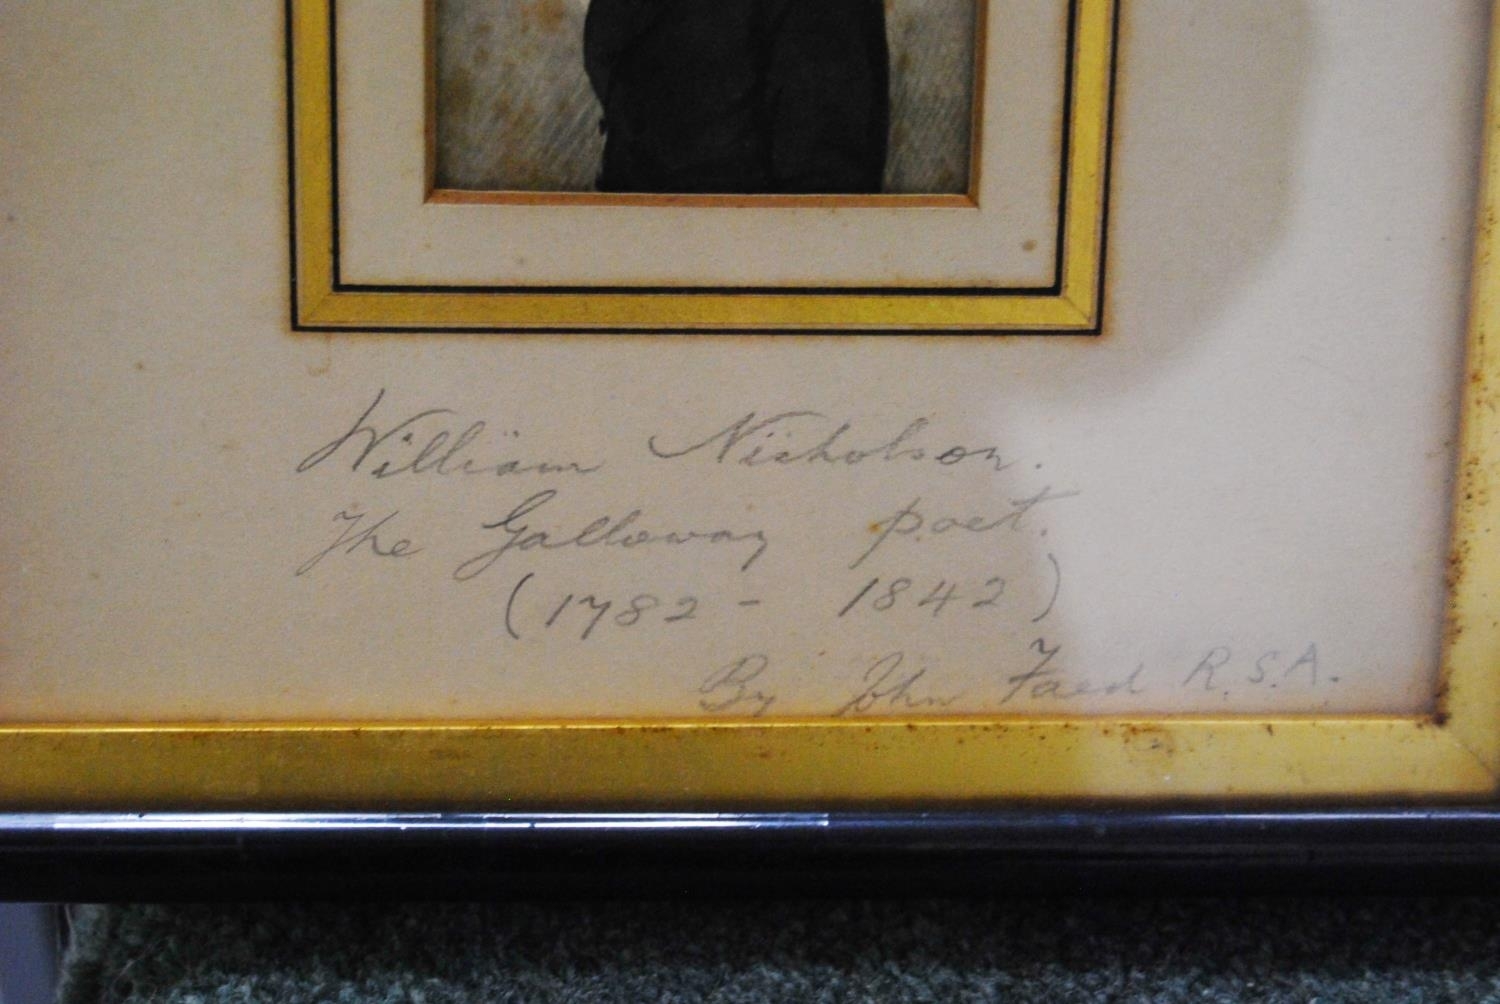 William Nicholson.
The Galloway poet.
(1782 - 1842)
By John Faed R.S.A.